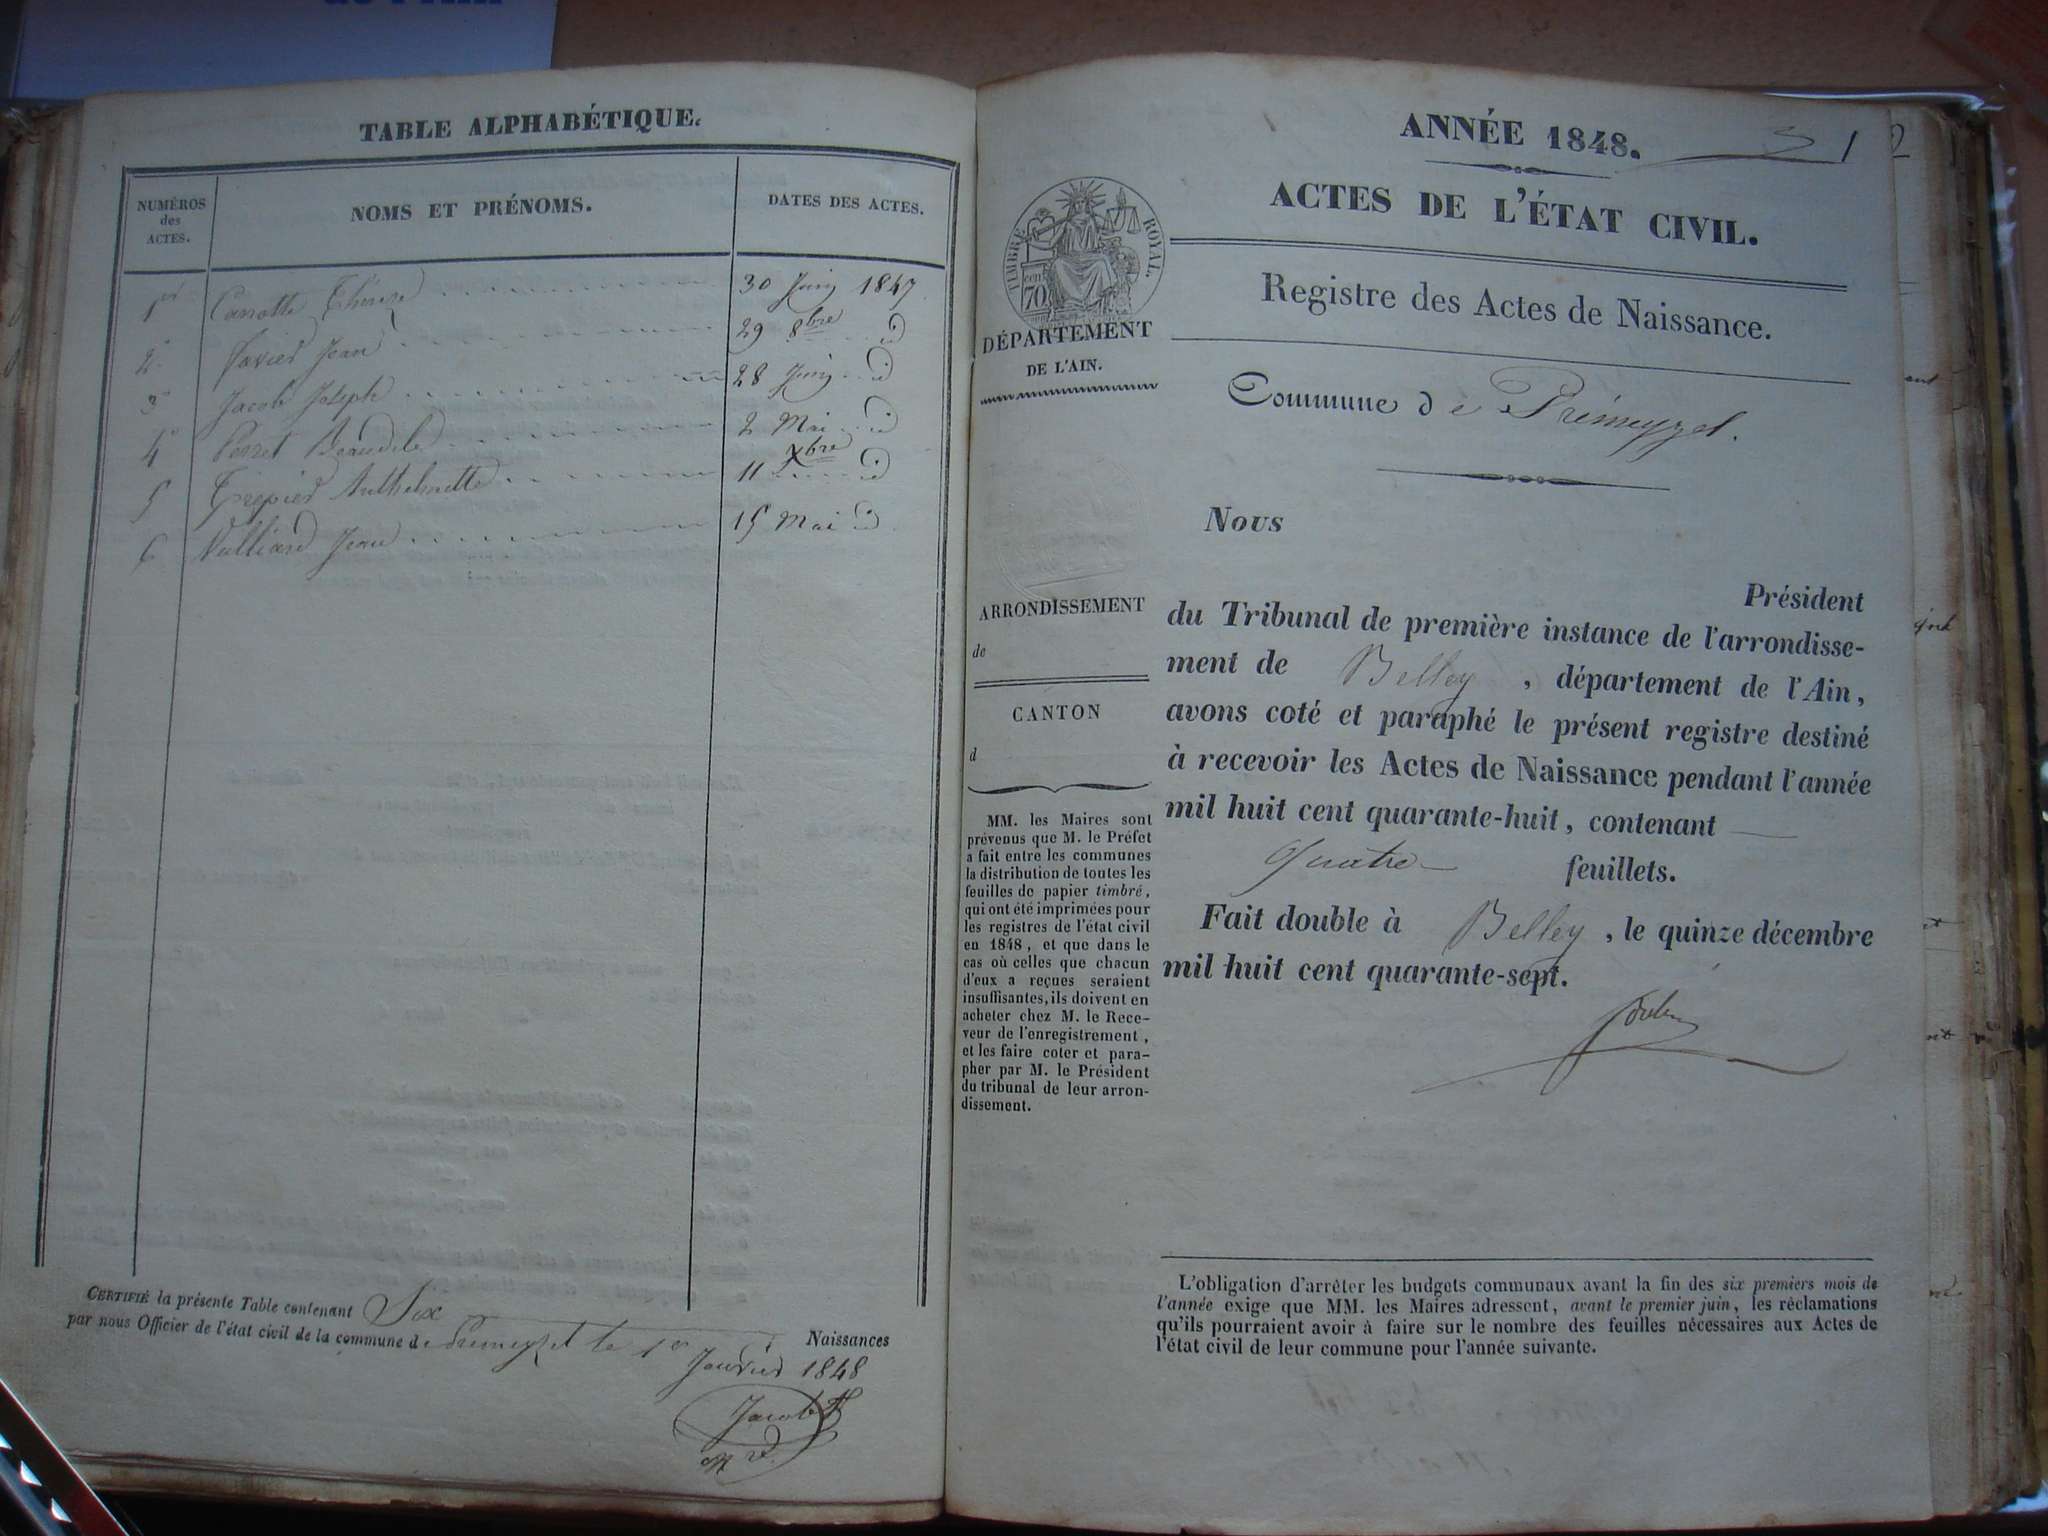 TABLE ALPHABÉTIQUE.
NUMÉROS
des
ACTES.
NOMS ET PRÉNOMS.
DATES DES ACTES.
1er Carrotte Thérèse 30 Juin 1847
2 Favier Jean 29 8bre id
3 Jacob Joseph 28 Juin id
4 Perret 2 Mai id
5 Trepier Anthelmette 11 Xbre id
6 Vulliard Jean 15 Mai id
CERTIFIÉ la présente Table contenant Six Naissances
par nous Officier de l'état civil de la commune de Prémeyzel le 1er
Janvier 1848
Jacob
ANNÉE 1848.
1
2
ACTES DE L'ÉTAT CIVIL.
TIMBRE ROYAL.
cen
70
Registre des Actes de Naissance.
DÉPARTEMENT
DE L'AIN.
Commune de Prémeyzel.
Nous
Président
ARRONDISSEMENT
de
CANTON
d
du Tribunal de première instance de l'arrondisse-
ment de Belley, département de l'Ain,
avons coté et paraphé le présent registre destiné
à recevoir les Actes de Naissance pendant l'année
mil huit cent quarante-huit, contenant
Quatre feuillets.
Fait double à Belley, le quinze décembre
mil huit cent quarante-sept.
MM. les Maires sont
prévenus que M. le Préfet
a fait entre les communes
la distribution de toutes les
feuilles de papier timbré,
qui ont été imprimées pour
les registres de l'état civil
en 1848, et que dans le
cas où celles que chacun
d'eux a reçues seraient
insuffisantes, ils doivent en
acheter chez M. le Rece-
veur de l'enregistrement,
et les faire coter et para-
pher par M. le Président
du tribunal de leur arron-
dissement.
L'obligation d'arrêter les budgets communaux avant la fin des six premiers mois de
l'année exige que MM. les Maires adressent, avant le premier juin, les réclamations
qu'ils pourraient avoir à faire sur le nombre des feuilles nécessaires aux Actes de
l'état civil de leur commune pour l'année suivante.